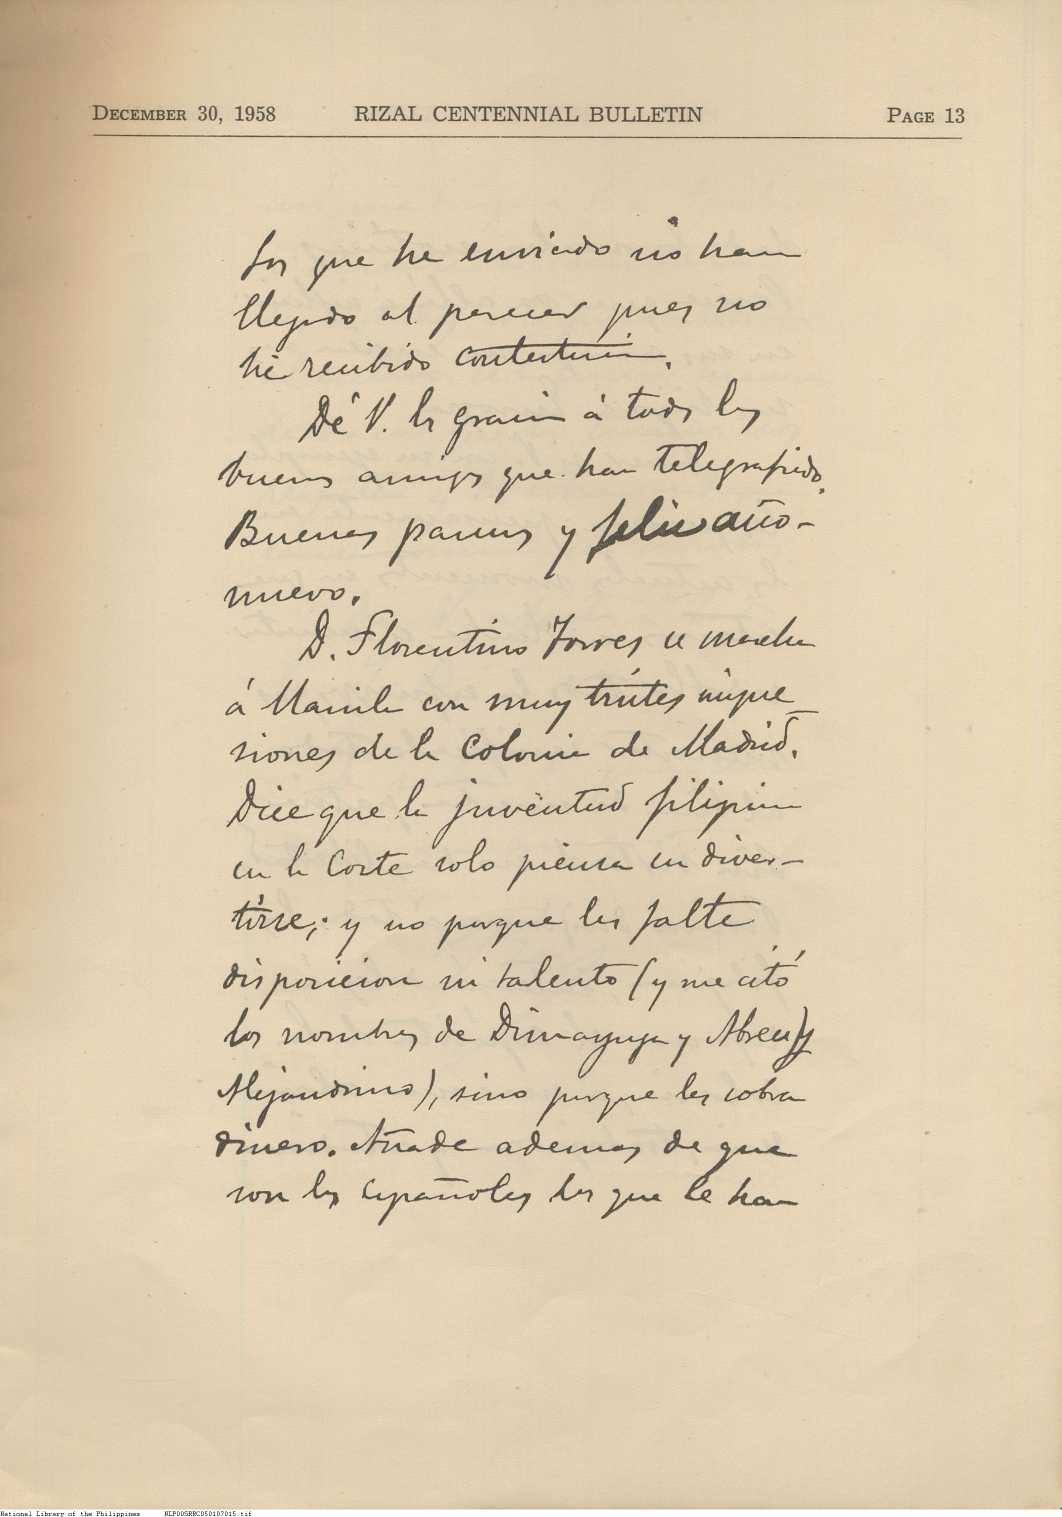 DECEMBER 30, 1958 RIZAL CENTENNIAL BULLETIN PAGE 13
los que he enviado no han
llegado al parecer pues no
he recibido contestacion.
Dé V. las gracias á todos los
buenos amigos que han telegrafiado.
Buenas pascuas y feliz año-
nuevo.
D. Florentino Torres se marcha
á Manila con muy tristes impre
siones de la Colonia de Madrid.
Dice que la juventud filipina
en la Corte solo piensa en diver-
tirse; y no porque les falte
disposicion ni talento (y me citó
los nombres de Dimayuga y Abreu y
Alejandrino), sino porque les sobra
dinero. Añade ademas de que
son los españoles los que le han
National Library of the Philippines NLP00SRRC050107015.tif